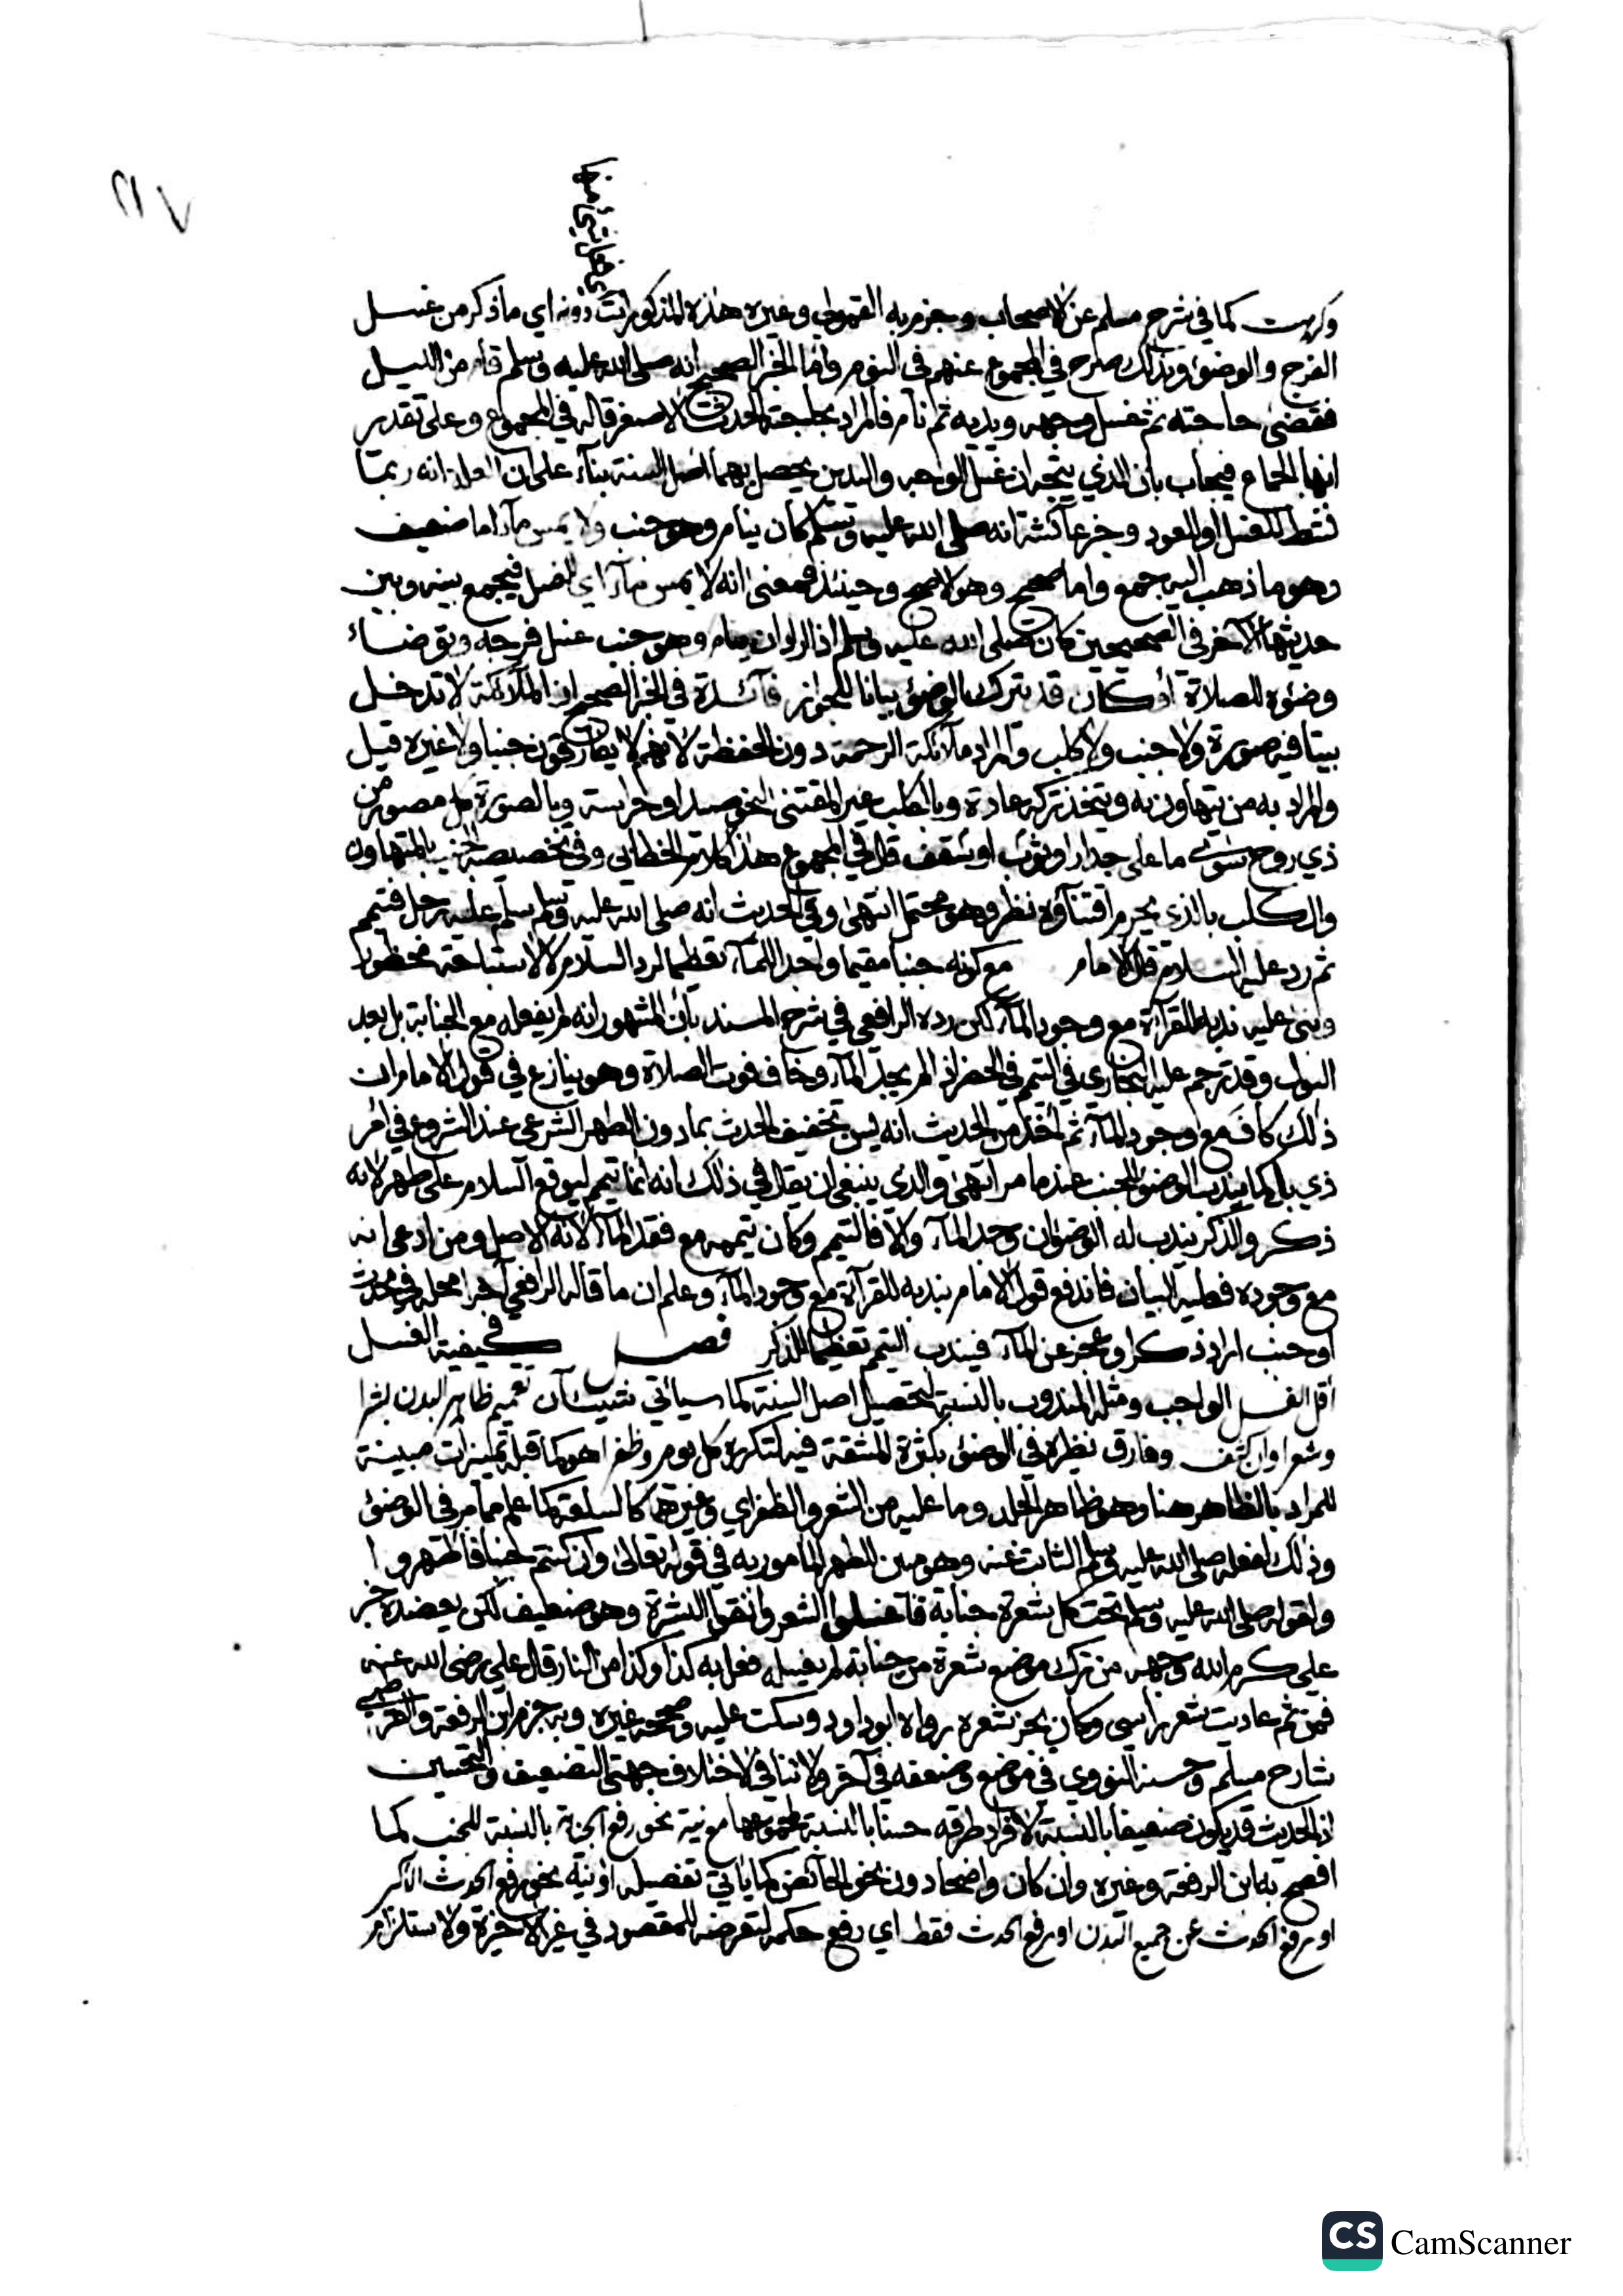 ٢١٧
وكرهت كما في شرح مسلم عن الاصحاب وجزم به القمولي وغيره هذه المذكورات دونه اي ما ذكر من غسل
الفرج والوضوء وبذلك صرح في المجموع عنهم في النوم واما الخبر الصحيح انه صلى الله عليه وسلم قام من الليل
فقضى حاجته ثم غسل وجهه ويديه ثم نام فالمراد بحاجته الحدث الاصغر قاله في المجموع وعلى تقدير
انها الجماع فيجاب بان الذي يتجه ان غسل الوجه واليدين يحصل بهما اصل السنة بناء على ان العلة انه ربما
نشط للغسل او العود وخبر عائشة انه صلى الله عليه وسلم كان ينام وهو جنب ولا يمس ماء اما ضعيف
وهو ما ذهب اليه جمع واما صحيح وهو الاصح وحينئذ فمعنى انه لا يمس ماء اي للغسل فيجمع بينه وبين
حديثها الآخر في الصحيحين كان صلى الله عليه وسلم اذا اراد ان ينام وهو جنب غسل فرجه وتوضاء
وضوءه للصلاة أو كان قد يترك الوضوء بيانا للجواز فآئدة في الخبر الصحيح ان الملآئكة لا تدخل
بيتا فيه صورة ولا جنب ولا كلب والمراد ملآئكة الرحمة دون الحفظة لأنهم لا يفارقون جنبا ولا غيره قيل
والمراد به من يتهاون به ويتخذ تركه عادة وبالكلب غير المقتنى لنحو صيد او حراسة وبالصورة كل مصور من
ذي روح سوى ما على جدار او ثوب او سقف قال في المجموع هذا كلام الخطابي وفي تخصيصه الجنب بالمتهاون
والكلب بالذي يحرم اقتنآؤه نظر وهو محتمل انتهى وفي الحديث انه صلى الله عليه وسلم سلم عليه رجل فتيمم
ثم رد عليه السلام قال الامام مع كونه جنبا مقيما واجدا للمآء تعظيما لرد السلام لا لاستباحة محظور
وبنى عليه ندبه للقرآءة مع وجود المآء لكن رده الرافعي في شرح المسند بان المشهور انه لم يفعله مع الجنابة بل بعد
البول وقد ترجم عليه البخاري في التيمم في الحضر اذا لم يجد المآء وخاف فوت الصلاة وهو ينازع في قول الامام ان
ذلك كاف مع وجود المآء ثم أخذ من الحديث انه يسن تخفيف الحدث بما دون الطهر الشرعي عند الشروع في أمر
ذي بال كما يندب الوضوء للجنب عند ما مر انتهى والذي ينبغي ان يقال في ذلك انه انما تيمم ليوقع السلام على طهر لانه
ذكر والذكر يندب له الوضوء ان وجد المآء والا فالتيمم وكان تيممه مع فقد المآء لانه الاصل ومن ادعى انه
مع وجوده فعليه البيان فاندفع قول الامام بندبه للقرآءة مع وجود المآء وعلم ان ما قاله الرافعي آخرا محله في محدث
او جنب اراد ذكرا وعجز عن المآء فيندب التيمم تعظيما للذكر فصل في كيفية الغسل
أقل الغسل الواجب ومثله المندوب بالنسبة لتحصيل اصل السنة كما سيأتي شيئان تعميم ظاهر البدن بشرا
وشعرا وان كثف وفارق نظيره في الوضوء بكثرة المشقة فيه لتكرره كل يوم وظفرا هو كما قبله تمييزات مبينة
للمراد بالظاهر هنا وهو ظاهر الجلد وما عليه من الشعر والظفر اي وغيرهما كالسلعة كما علم مما مر في الوضوء
وذلك لفعله صلى الله عليه وسلم الثابت عنه وهو مبين للطهر المأمور به في قوله تعالى وان كنتم جنبا فاطهروا
ولقوله صلى الله عليه وسلم تحت كل شعرة جنابة فاغسلوا الشعر وانقوا البشرة وهو ضعيف لكن يعضده خبر
علي كرم الله وجهه من ترك موضع شعرة من جنابة لم يغسله فعل به كذا وكذا من النار قال علي رضي الله عنه
فمن ثم عاديت شعر راسي وكان يجز شعره رواه ابو داود وسكت عليه وصححه غيره وبه جزم ابن الرفعة والقرطبي
شارح مسلم وحسنه النووي في موضع وضعفه في آخر ولا تنافي لاختلاف جهتي التضعيف والتحسين
اذ الحديث قد يكون ضعيفا بالنسبة لافراد طرقه حسنا بالنسبة لمجموعها مع نية نحو رفع الجنابة بالنسبة للجنب كما
افصح به ابن الرفعة وغيره وان كان واضحا دون نحو الحآئض كما يأتي تفصيله او نية نحو رفع الحدث الاكبر
او رفع الحدث عن جميع البدن او رفع الحدث فقط اي رفع حكمه لتعرضه للمقصود في غير الاخيرة ولاستلزام
CS CamScanner